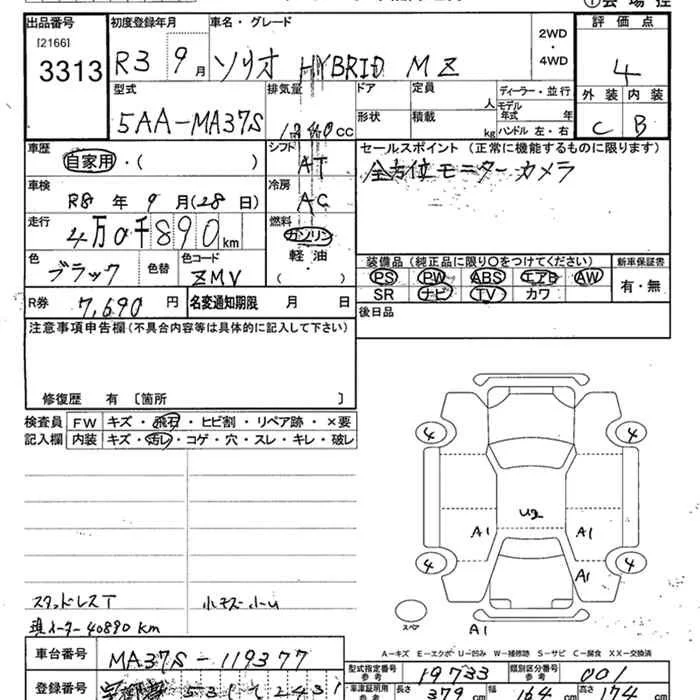 出品番号
[2166]
3313
初度登録年月
R3 9月
車名・グレード
ソリオ HYBRID MZ
2WD
・
4WD
評価点
4
外装 内装
C B
型式
5AA-MA37S
排気量
CC
ドア
定員
人
形状
積載
kg
ディーラー・並行
モデル年式 年
ハンドル 左・右
車歴
自家用・( )
シフト
AT
セールスポイント (正常に機能するものに限ります)
全方位モニターカメラ
車検
R8年 9月(28日)
冷房
AC
走行
4万0千890km
燃料
ガソリン
・
軽油
・
( )
色
ブラック
色替
色コード
ZMV
装備品 (純正品に限り○をつけてください)
PS PW ABS エアB AW
SR ナビ TV カワ
新車保証書
有・無
R券 7,690円
名変通知期限 月 日
後日品
注意事項申告欄(不具合内容等は具体的に記入して下さい)
修復歴 有 〔箇所 〕
検査員
記入欄
FW キズ・飛石・ヒビ割・リペア跡・×要
内装 キズ・汚レ・コゲ・穴・スレ・キレ・破レ
4 4
U2
A1 A1
4 4
A1
スペア
A1
スタッドレスT
小キズ小U
現メーター40890km
A-キズ E-エクボ U-凹み W-補修跡 S-サビ C-腐食 XX-交換済
車台番号
MA37S-119377
型式指定番号
参考
19733
類別区分番号
参考
001
登録番号
車庫証明用
参考
長さ 379cm
幅 164cm
高さ 174cm